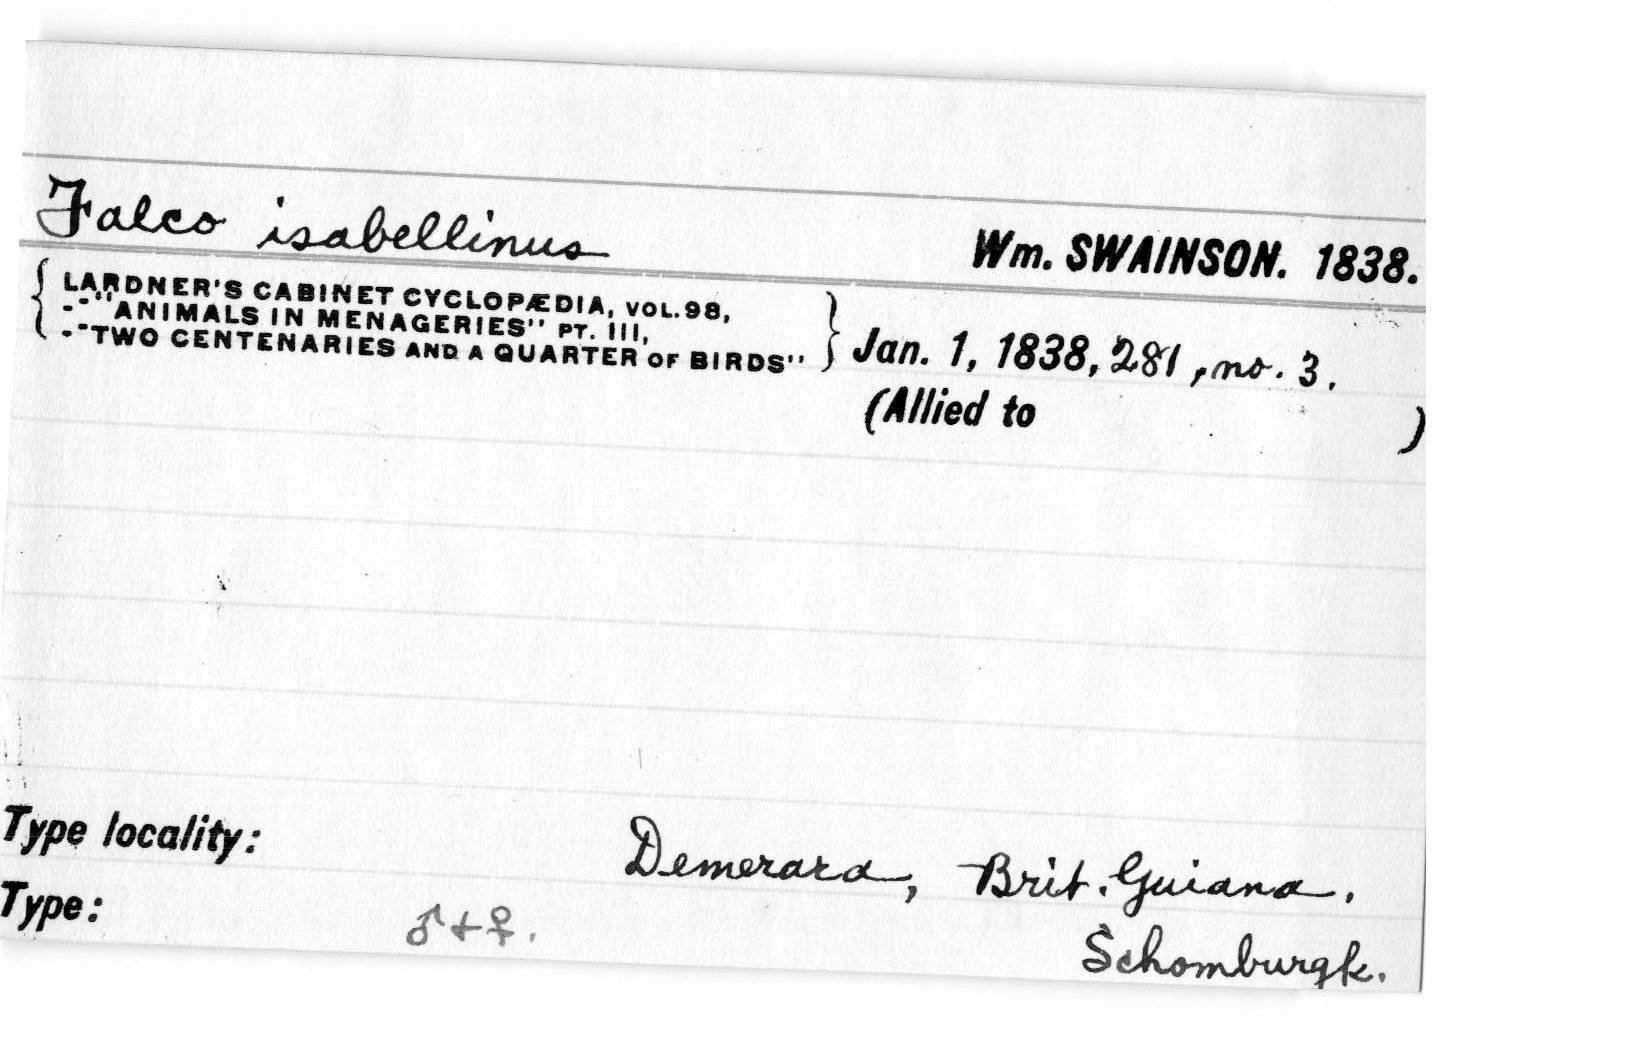 Falco isabellinus Wm. SWAINSON. 1838.
LARDNER'S CABINET CYCLOPÆDIA, VOL.98,
--"ANIMALS IN MENAGERIES" PT. III,
--"TWO CENTENARIES AND A QUARTER OF BIRDS" Jan. 1, 1838, 281, no. 3.
(Allied to )
Type locality: Demerara, Brit. Guiana.
Type: ♂ + ♀. Schomburgk.